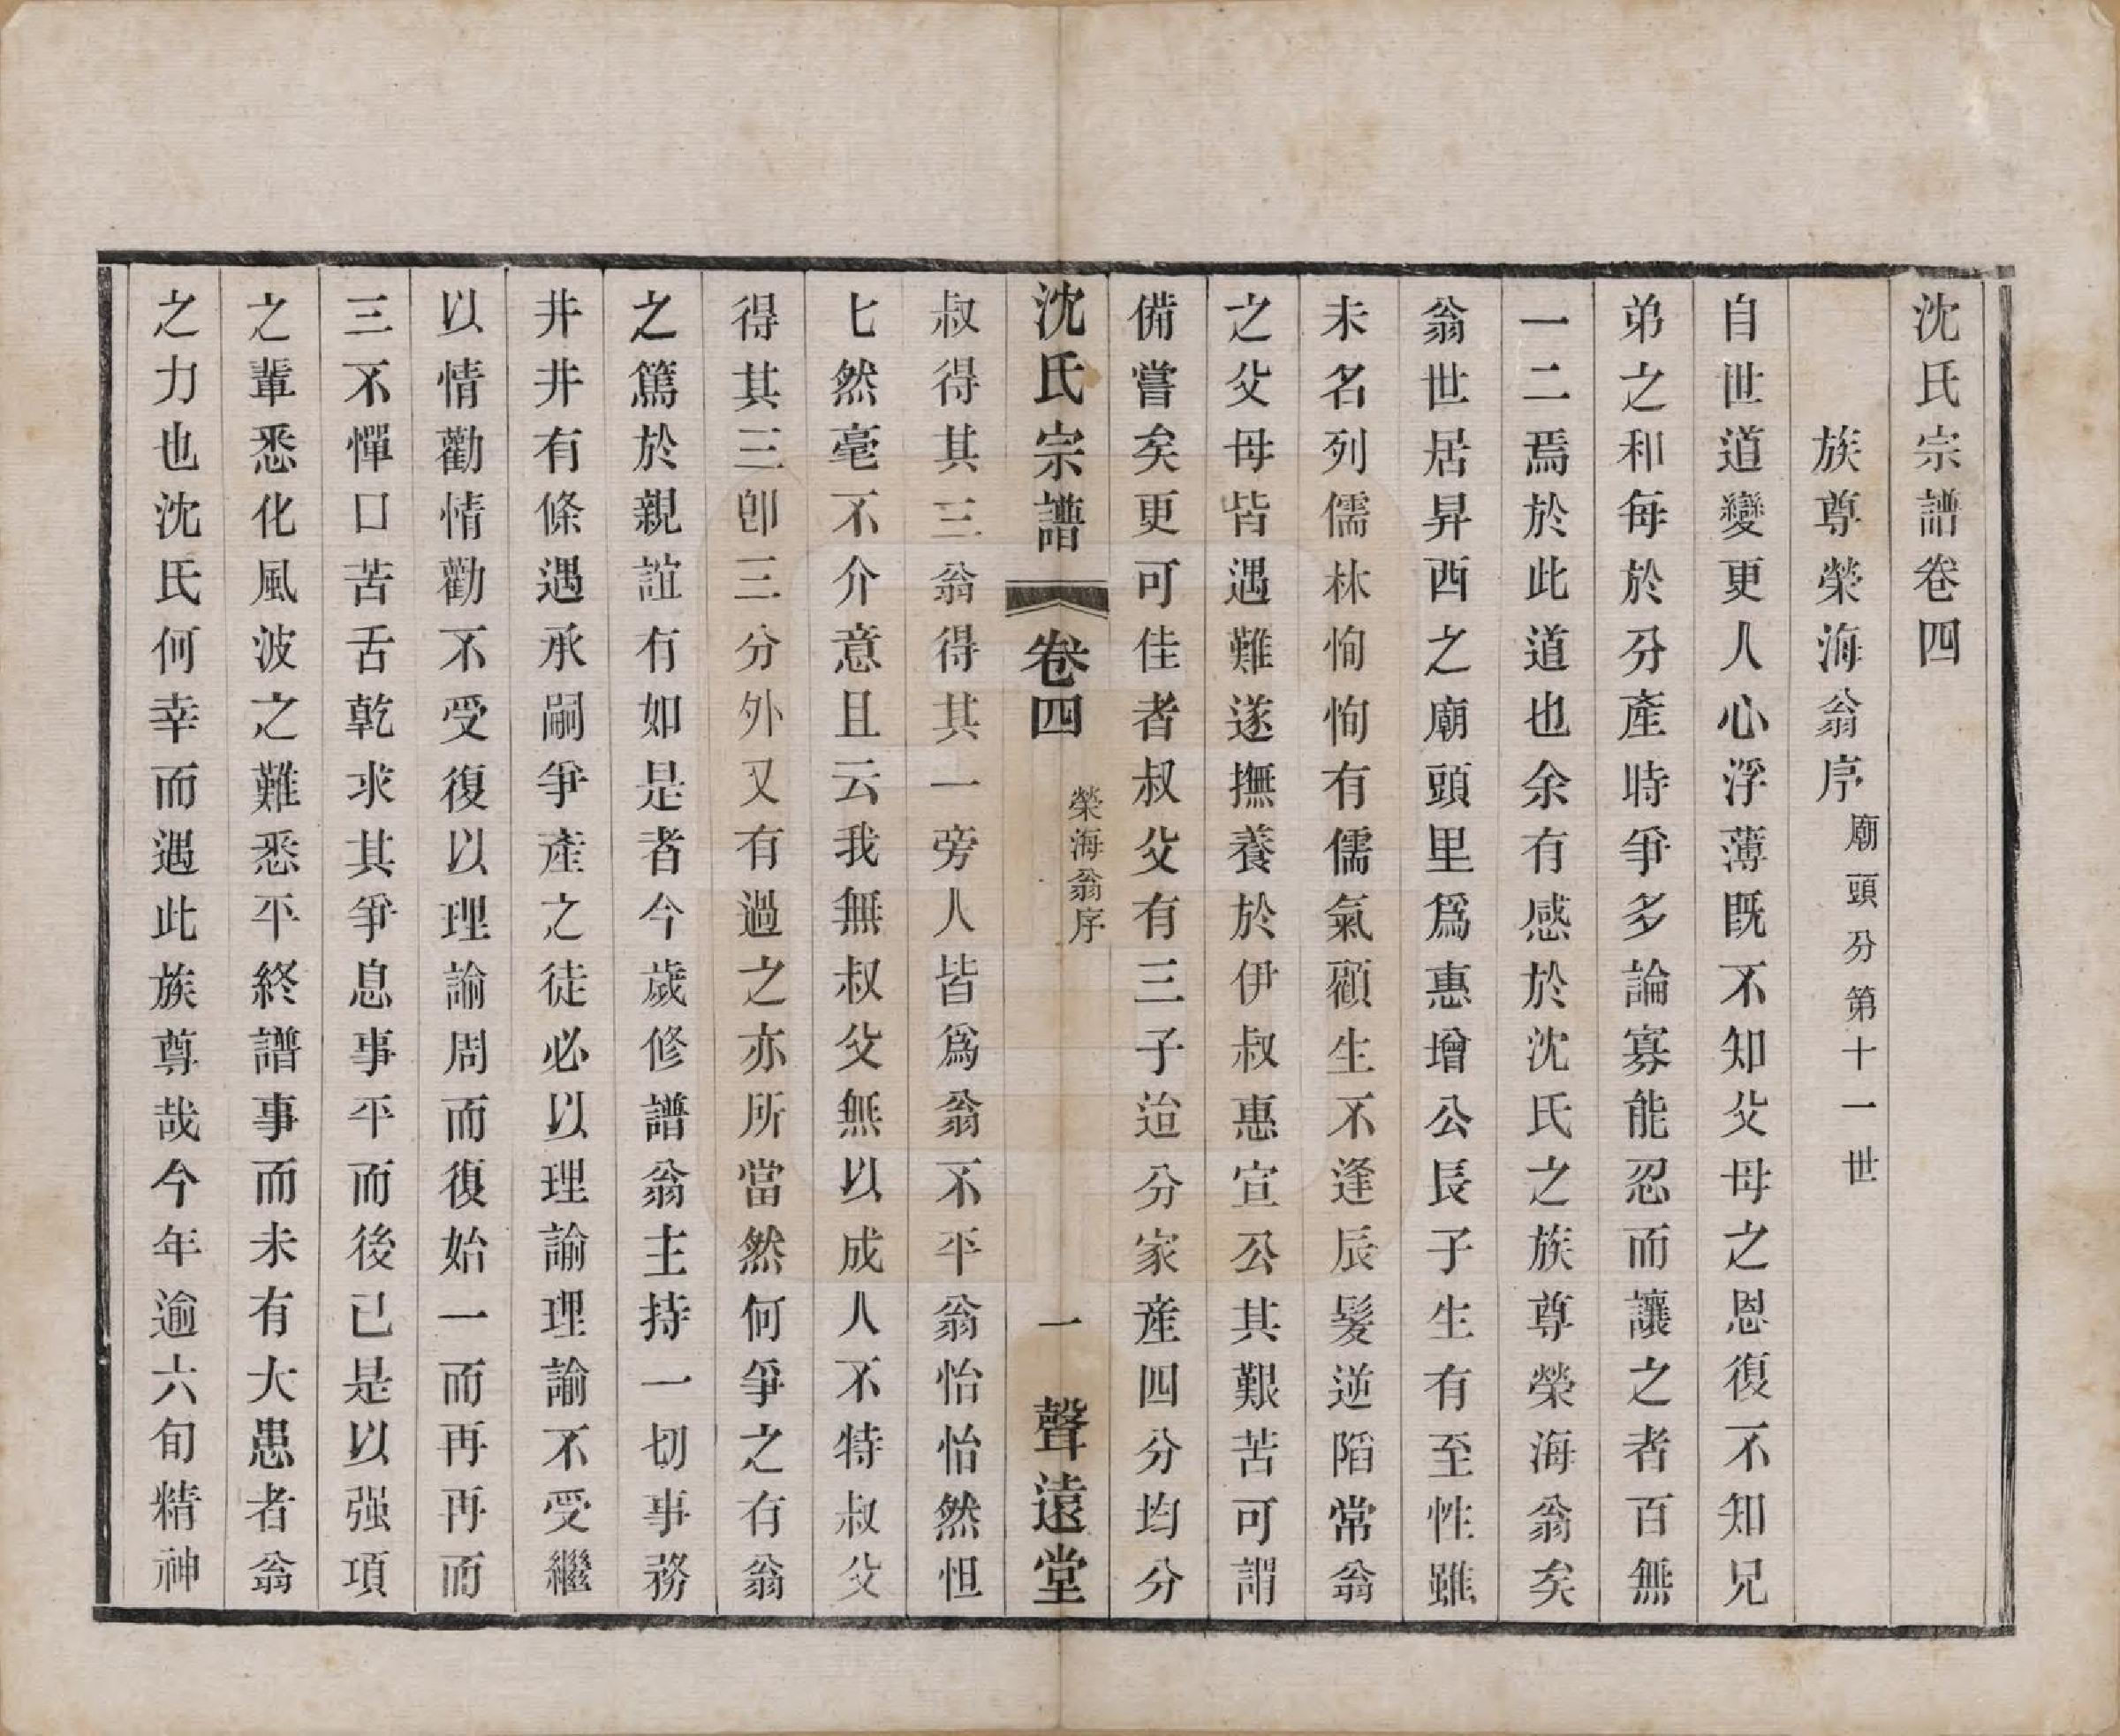 沈氏宗譜卷四
族尊榮海翁序 廟頭分第十一世
自世道變更人心浮薄既不知父母之恩復不知兄
弟之和每於分產時爭多論寡能忍而讓之者百無
一二焉於此道也余有感於沈氏之族尊榮海翁矣
翁世居昇西之廟頭里爲惠增公長子生有至性雖
未名列儒林恂恂有儒氣顧生不逢辰髮逆陷常翁
之父母皆遇難遂撫養於伊叔惠宣公其艱苦可謂
備嘗矣更可佳者叔父有三子迨分家產四分均分
沈氏宗譜 卷四 榮海翁序 一 聲遠堂
叔得其三翁得其一旁人皆爲翁不平翁怡怡然怛
七然毫不介意且云我無叔父無以成人不特叔父
得其三卽三分外又有過之亦所當然何爭之有翁
之篤於親誼有如是者今歲修譜翁主持一切事務
井井有條遇承嗣爭產之徒必以理諭理諭不受繼
以情勸情勸不受復以理諭周而復始一而再再而
三不憚口苦舌乾求其爭息事平而後已是以强項
之輩悉化風波之難悉平終譜事而未有大患者翁
之力也沈氏何幸而遇此族尊哉今年逾六旬精神